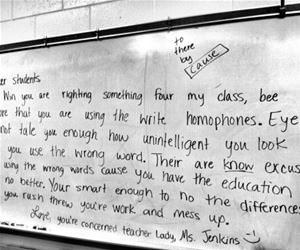 to
there
by
cause
er students
Win you are righting something four my class, bee
re that you are using the write homophones. Eye
not tale you enough how unintelligent you look
you use the wrong word. Their are know excus
using the wrong words cause you have the education
no better. Your smart enough to no the differences
you rush threw you're work and mess up.
Love, you're concerned teacher Lady, Ms. Jenkins